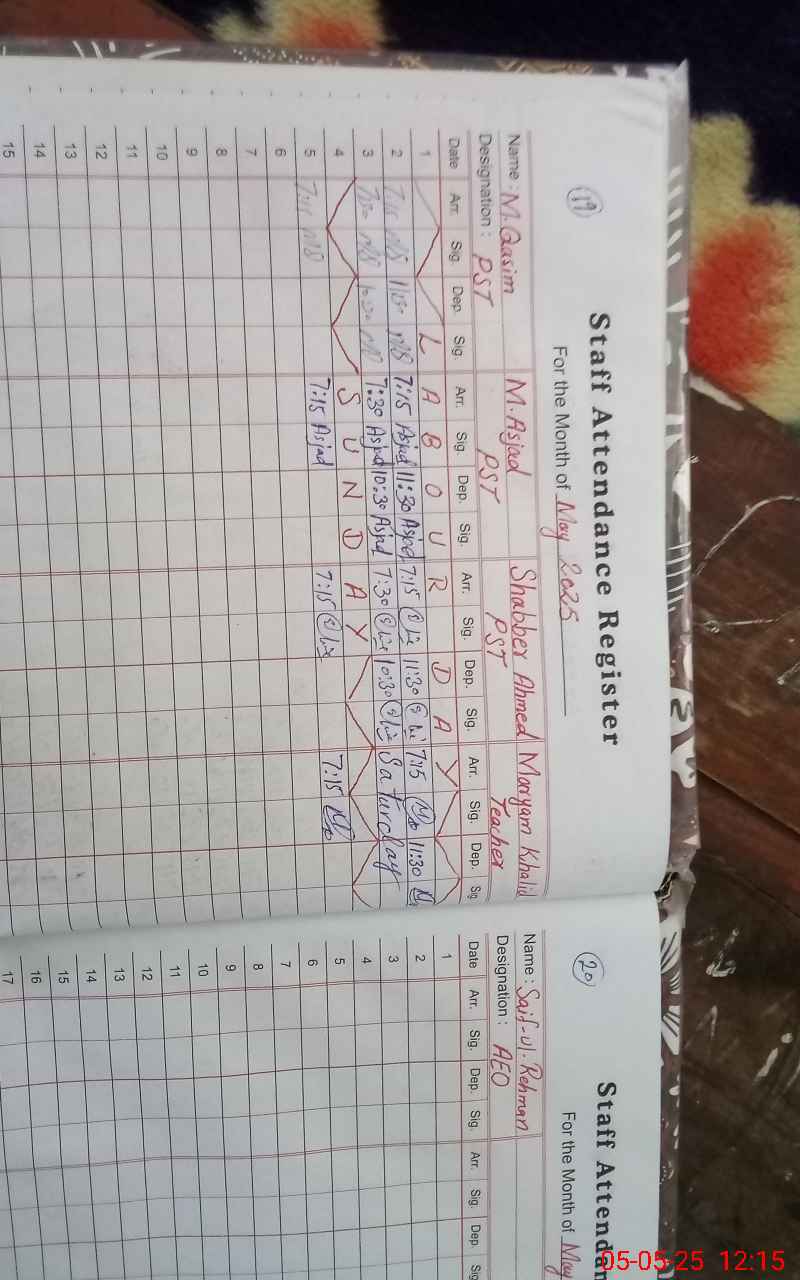 19
Staff Attendance Register
For the Month of May 2025
Name : M. Qasim M. Asjad Shabber Ahmed Maryam Khalid
Designation : PST PST PST Teacher
Date Arr. Sig. Dep. Sig. Arr. Sig. Dep. Sig. Arr. Sig. Dep. Sig. Arr. Sig. Dep. Sig
1 L A B O U R D A Y
2 7:15 11:30 7:15 Asjad 11:30 Asjad 7:15 11:30 7:15 11:30
3 7:30 10:30 7:30 Asjad 10:30 Asjad 7:30 10:30 Saturday
4 S U N D A Y
5 7:15 7:15 Asjad 7:15 7:15
6
7
8
9
10
11
12
13
14
15
20
Staff Attendan
For the Month of May
Name : Saif-ul-Rehman
Designation : AEO
Date Arr. Sig. Dep. Sig. Arr. Sig. Dep. Sig
1
2
3
4
5
6
7
8
9
10
11
12
13
14
15
16
17
05-05-25 12:15